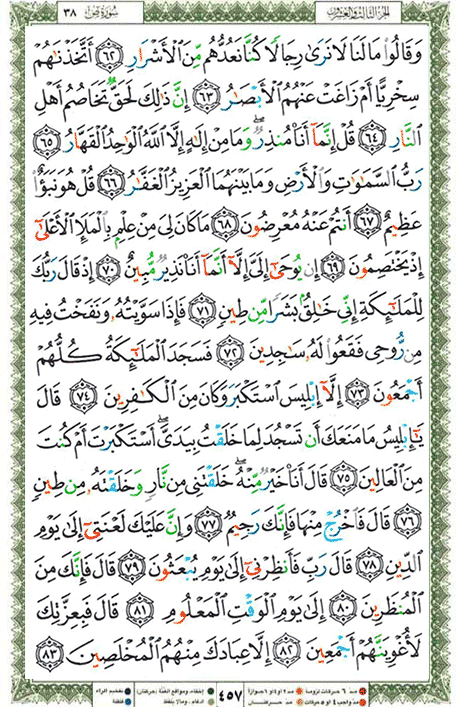 الجزء الثالث والعشرون سورة ص ٣٨
وَقَالُوا۟ مَا لَنَا لَا نَرَىٰ رِجَالًا كُنَّا نَعُدُّهُم مِّنَ ٱلْأَشْرَارِ ٦٢ أَتَّخَذْنَٰهُمْ
سِخْرِيًّا أَمْ زَاغَتْ عَنْهُمُ ٱلْأَبْصَٰرُ ٦٣ إِنَّ ذَٰلِكَ لَحَقٌّ تَخَاصُمُ أَهْلِ
ٱلنَّارِ ٦٤ قُلْ إِنَّمَآ أَنَا۠ مُنذِرٌ ۖ وَمَا مِنْ إِلَٰهٍ إِلَّا ٱللَّهُ ٱلْوَٰحِدُ ٱلْقَهَّارُ ٦٥
رَبُّ ٱلسَّمَٰوَٰتِ وَٱلْأَرْضِ وَمَا بَيْنَهُمَا ٱلْعَزِيزُ ٱلْغَفَّٰرُ ٦٦ قُلْ هُوَ نَبَؤٌا۟
عَظِيمٌ ٦٧ أَنتُمْ عَنْهُ مُعْرِضُونَ ٦٨ مَا كَانَ لِىَ مِنْ عِلْمٍۭ بِٱلْمَلَإِ ٱلْأَعْلَىٰٓ
إِذْ يَخْتَصِمُونَ ٦٩ إِن يُوحَىٰٓ إِلَىَّ إِلَّآ أَنَّمَآ أَنَا۠ نَذِيرٌ مُّبِينٌ ٧٠ إِذْ قَالَ رَبُّكَ
لِلْمَلَٰٓئِكَةِ إِنِّى خَٰلِقٌۢ بَشَرًا مِّن طِينٍ ٧١ فَإِذَا سَوَّيْتُهُۥ وَنَفَخْتُ فِيهِ
مِن رُّوحِى فَقَعُوا۟ لَهُۥ سَٰجِدِينَ ٧٢ فَسَجَدَ ٱلْمَلَٰٓئِكَةُ كُلُّهُمْ
أَجْمَعُونَ ٧٣ إِلَّآ إِبْلِيسَ ٱسْتَكْبَرَ وَكَانَ مِنَ ٱلْكَٰفِرِينَ ٧٤ قَالَ
يَٰٓإِبْلِيسُ مَا مَنَعَكَ أَن تَسْجُدَ لِمَا خَلَقْتُ بِيَدَىَّ ۖ أَسْتَكْبَرْتَ أَمْ كُنتَ
مِنَ ٱلْعَالِينَ ٧٥ قَالَ أَنَا۠ خَيْرٌ مِّنْهُ ۖ خَلَقْتَنِى مِن نَّارٍ وَخَلَقْتَهُۥ مِن طِينٍ
٧٦ قَالَ فَٱخْرُجْ مِنْهَا فَإِنَّكَ رَجِيمٌ ٧٧ وَإِنَّ عَلَيْكَ لَعْنَتِىٓ إِلَىٰ يَوْمِ
ٱلدِّينِ ٧٨ قَالَ رَبِّ فَأَنظِرْنِىٓ إِلَىٰ يَوْمِ يُبْعَثُونَ ٧٩ قَالَ فَإِنَّكَ مِنَ
ٱلْمُنظَرِينَ ٨٠ إِلَىٰ يَوْمِ ٱلْوَقْتِ ٱلْمَعْلُومِ ٨١ قَالَ فَبِعِزَّتِكَ
لَأُغْوِيَنَّهُمْ أَجْمَعِينَ ٨٢ إِلَّا عِبَادَكَ مِنْهُمُ ٱلْمُخْلَصِينَ ٨٣
مد ٦ حركات لزوماً مد ٢ أو ٤ أو ٦ جوازاً ٤٥٧ إخفاء، ومواقع الغنة (حركتان) تفخيم الراء
مد واجب ٤ أو ٥ حركات مد حركتان إدغام، وما لا يلفظ قلقلة